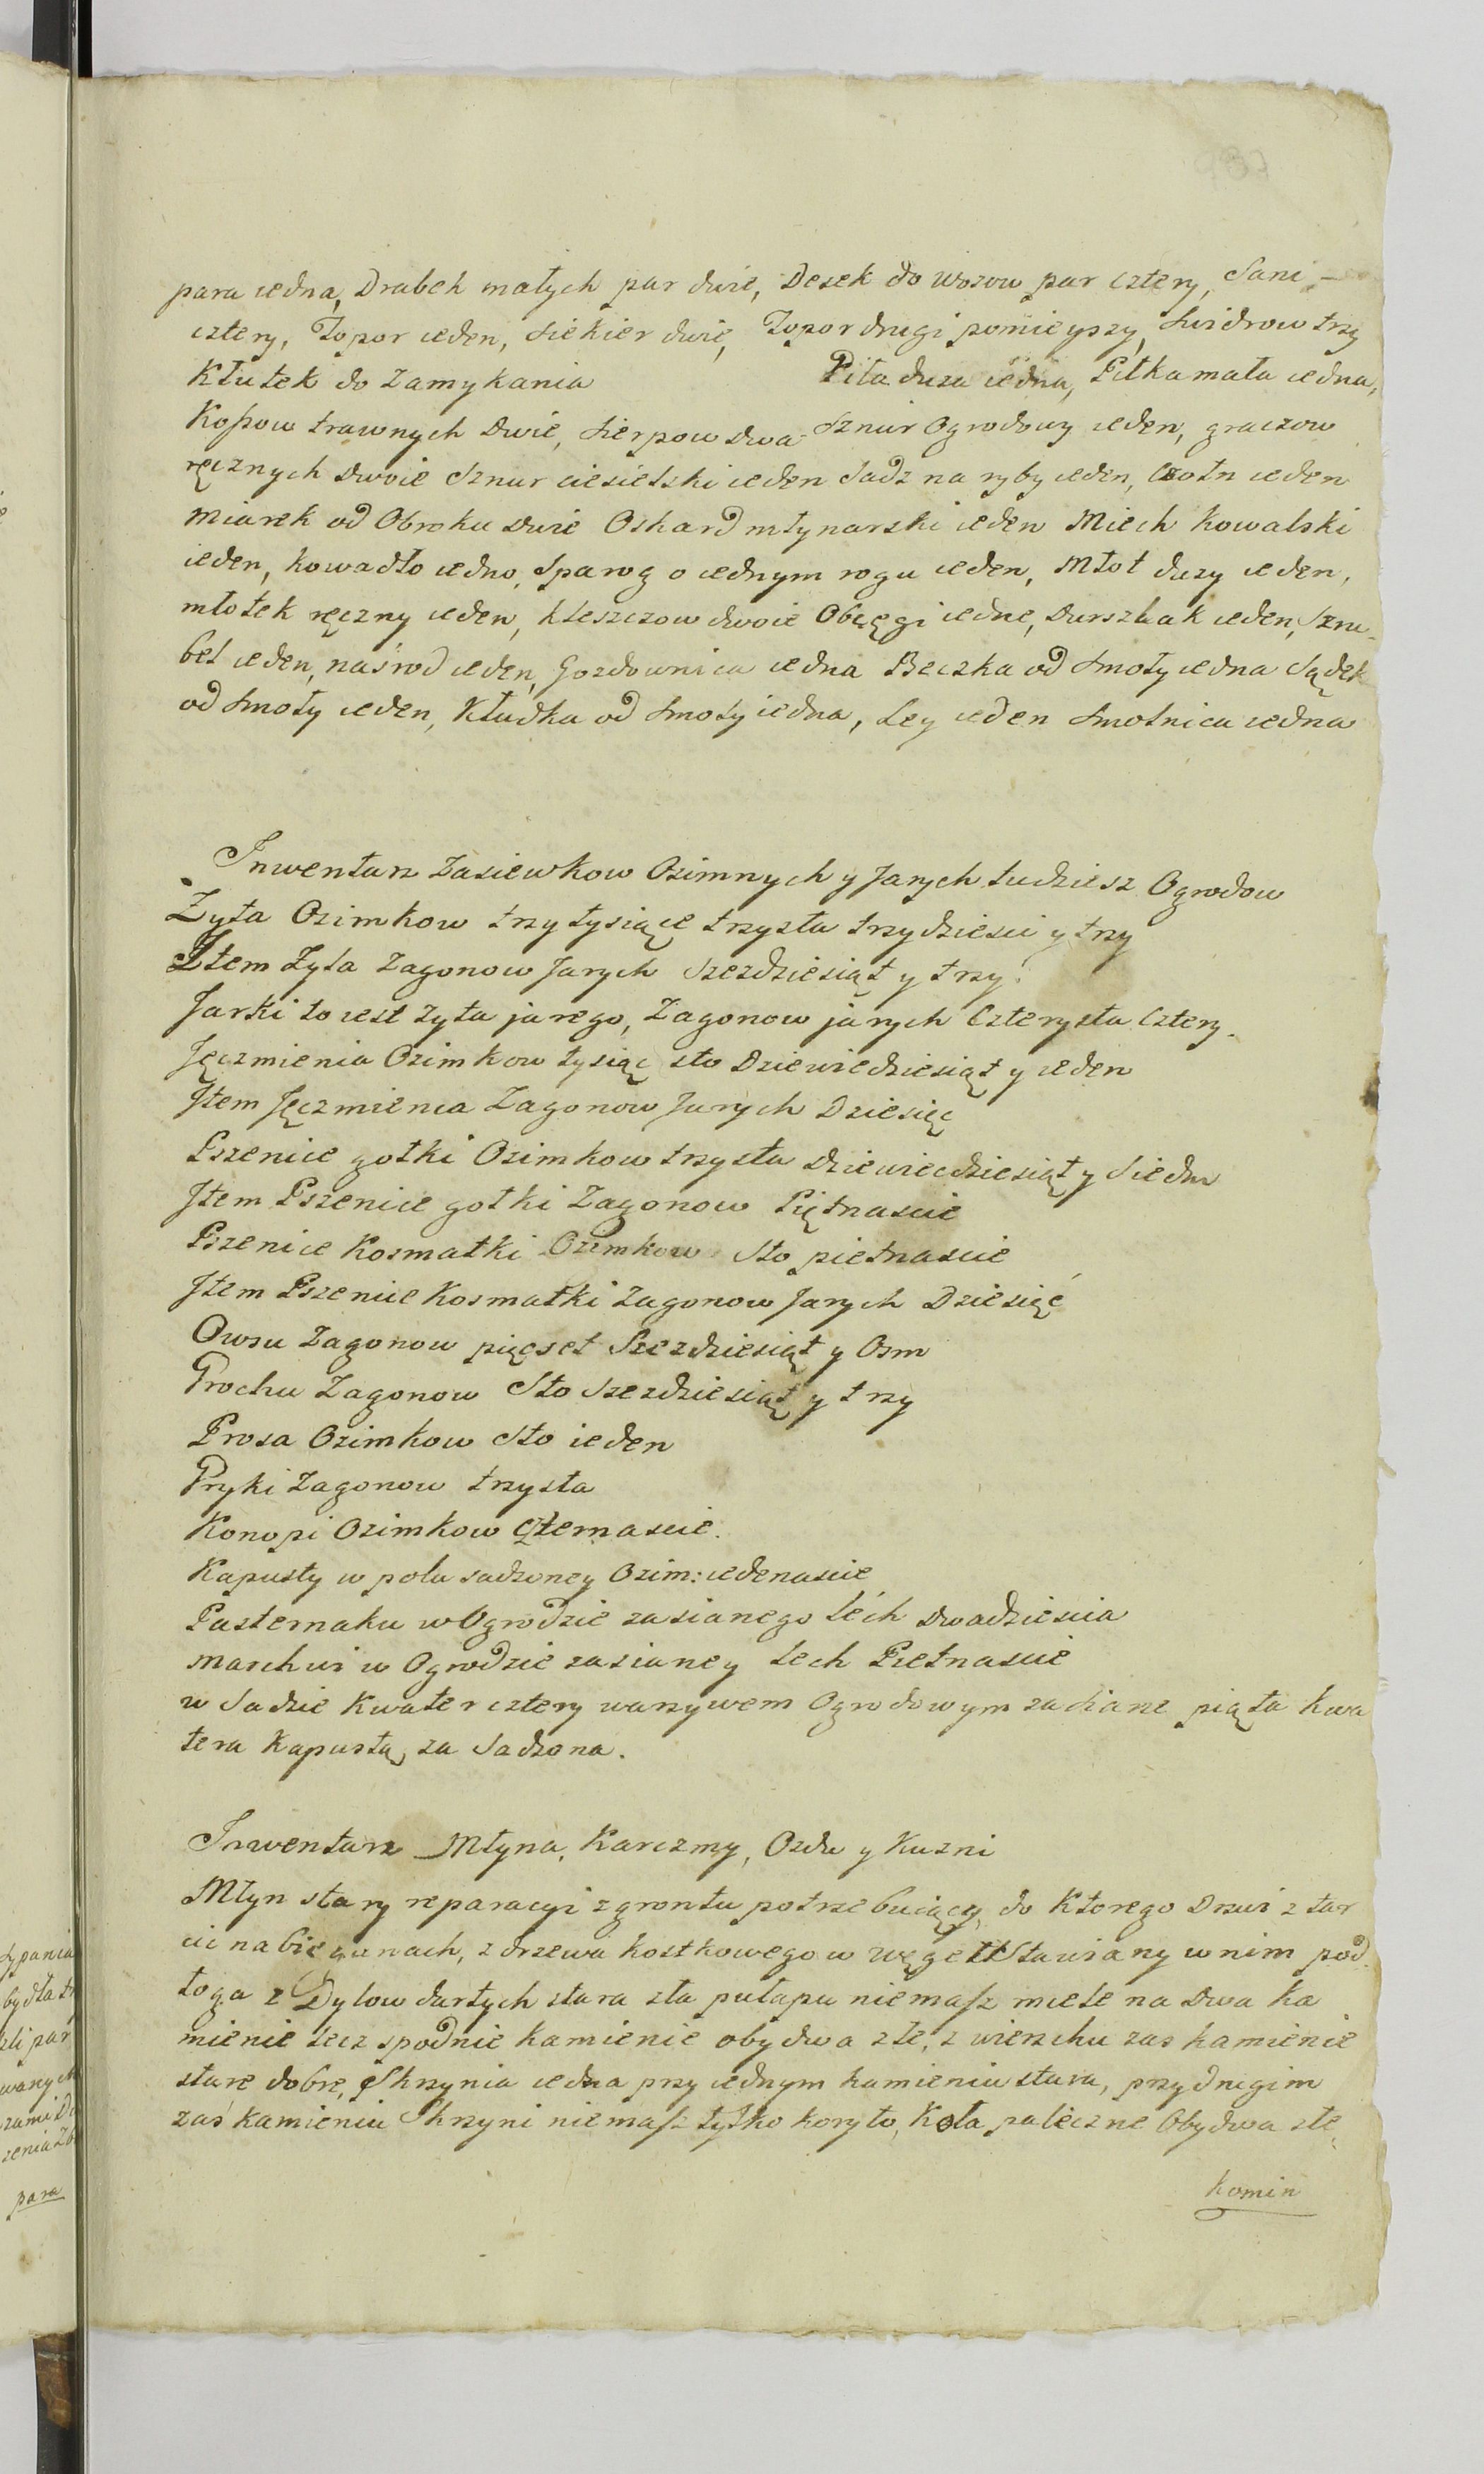 937
para iedna, Drabek małych par dwie, Desek do wozow par cztery, Sani -
cztery, Topor ieden, siekier dwie, Topor drugi pomieyszy, swidrow trzy
Kłutek do zamykania Piła duza iedna, Piłka mała iedna,
Kossow trawnych dwie, sierpow dwa Sznur Ogrodowy ieden, graczow
ręcznych dwoie Sznur ciesielski ieden Sadz na ryby ieden, Czołn ieden
Miarek od Obroku dwie Oskard młynarski ieden Miech kowalski
ieden, kowadło iedno, Sparog o iednym rogu ieden, Młot duzy ieden,
młotek ręczny ieden, kleszczow dwoie Obcęgi iedne, Durszlak ieden, Szru-
bel ieden, naśrod ieden, Gozdownica iedna Beczka od smoły iedna Sądek
od smoły ieden, Kłudka od smoły iedna, Ley ieden smolnica iedna
Inwentarz zasiewkow Ozimnych y Jarych tudziesz Ogrodow
Żyta Ozimkow trzy tysiące trzysta trzydziesci y trzy
Item żyta zagonow Jarych szezdziesiąt y trzy.
Jarki to iest zyta jarego, zagonow jarych Czterysta Cztery.
Jęczmienia Ozimkow tysiąc sto dziewiedziesiąt y ieden
Jtem Jęczmienia zagonow Jarych Dziesięć
Pszenice gołki Ozimkow trzysta dziewiecdziesiąt y siedm
Jtem Pszenice gołki zagonow Piętnascie
Pszenice Kosmatki Ozimkow Sto pietnascie
Jtem Pszenice Kosmatki zagonow Jarych Dziesięć
Owsu zagonow pięcset Szezdziesiąt y Osm
Grochu zagonow Sto szezdziesiąt y trzy
Prosa Ozimkow Sto ieden
Gryki zagonow trzysta
Konopi Ozimkow czternascie.
Kapusty w polu sadzoney Ozim: iedenascie
Pasternaku w Ogrodzie zasianego Lech dwadziescia
marchwi w Ogrodzie zasianey Lech Pietnascie
w Sadzie Kwater cztery warzywem Ogrodowym zasiane piąta kwa
tera kapustą za sadzona.
Inwentarz Młyna, Karczmy, Ozdu y Kuzni
Młyn stary reparacyi zgrontu potrzebuiący, do Ktorego Drzwi z tar
cic na biegunach, z drzewa kostkowego w węgeł Stawiany w nim pod.
łoga z Dylow dartych stara zła pułapu niemasz miele na dwa ka
mienie lecz spodnie kamienie obydwa złe, z wierzchu zas kamienie
stare dobre, Skrzynia iedna przy iednym kamieniu stara, przy drugim
zaś kamieniu Skrzyni niemasz tylko koryto, Koła paleczne Obydwa złe,
komin
sypania
bydła
szli par
para